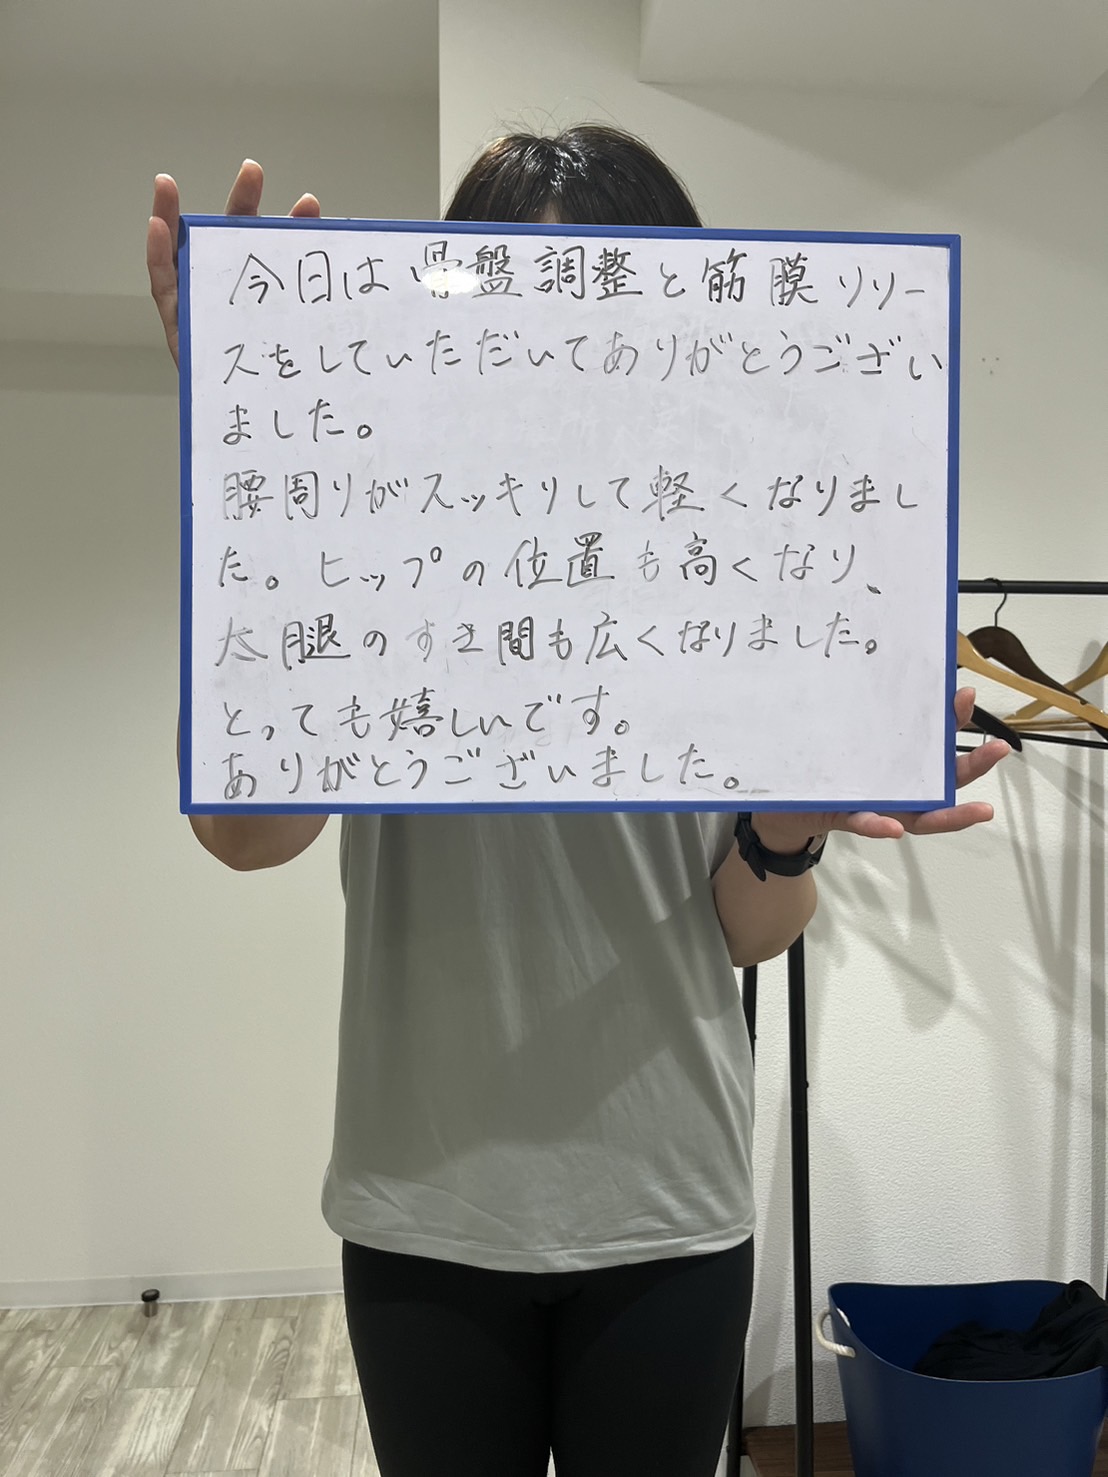 今日は骨盤調整と筋膜リリー
スをしていただいてありがとうござい
ました。
腰周りがスッキリして軽くなりまし
た。ヒップの位置も高くなり、
太腿のすき間も広くなりました。
とっても嬉しいです。
ありがとうございました。